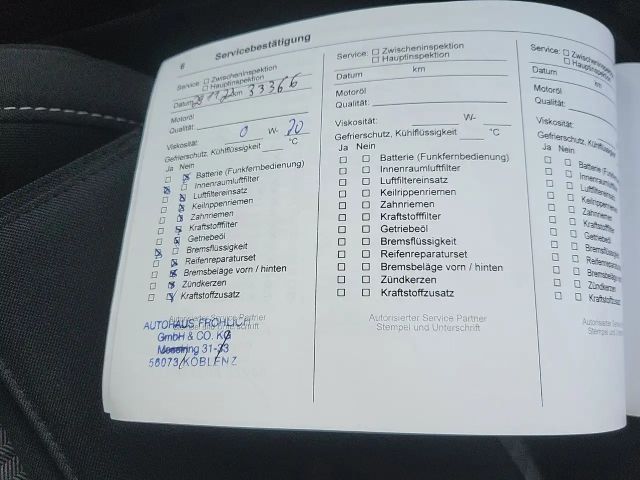 6 Servicebestätigung
Service: Zwischeninspektion
Hauptinspektion
Datum km 33366
Motoröl
Qualität:
Viskosität: 0 W- 20
Gefrierschutz, Kühlflüssigkeit °C
Ja Nein
Batterie (Funkfernbedienung)
Innenraumluftfilter
Luftfiltereinsatz
Keilrippenriemen
Zahnriemen
Kraftstofffilter
Getriebeöl
Bremsflüssigkeit
Reifenreparaturset
Bremsbeläge vorn / hinten
Zündkerzen
Kraftstoffzusatz
Autorisierter Service Partner
Stempel und Unterschrift
AUTOHAUS FRÖHLICH
GmbH & CO. KG
Moselring 31-33
56073 KOBLENZ
Service: Zwischeninspektion
Hauptinspektion
Datum km
Motoröl
Qualität:
Viskosität: W-
Gefrierschutz, Kühlflüssigkeit °C
Ja Nein
Batterie (Funkfernbedienung)
Innenraumluftfilter
Luftfiltereinsatz
Keilrippenriemen
Zahnriemen
Kraftstofffilter
Getriebeöl
Bremsflüssigkeit
Reifenreparaturset
Bremsbeläge vorn / hinten
Zündkerzen
Kraftstoffzusatz
Autorisierter Service Partner
Stempel und Unterschrift
Service: Zwischeninspektion
Hauptinspektion
Datum km
Motoröl
Qualität:
Viskosität:
Gefrierschutz, Kühlflüssig
Ja Nein
Batterie (Funkf
Innenraumluftf
Luftfiltereinsat
Keilrippenriem
Zahnriemen
Kraftstofffilter
Getriebeöl
Bremsflüssig
Reifenrepara
Bremsbeläg
Zündkerzen
Kraftstoffzu
Autorisierter
Stempel u